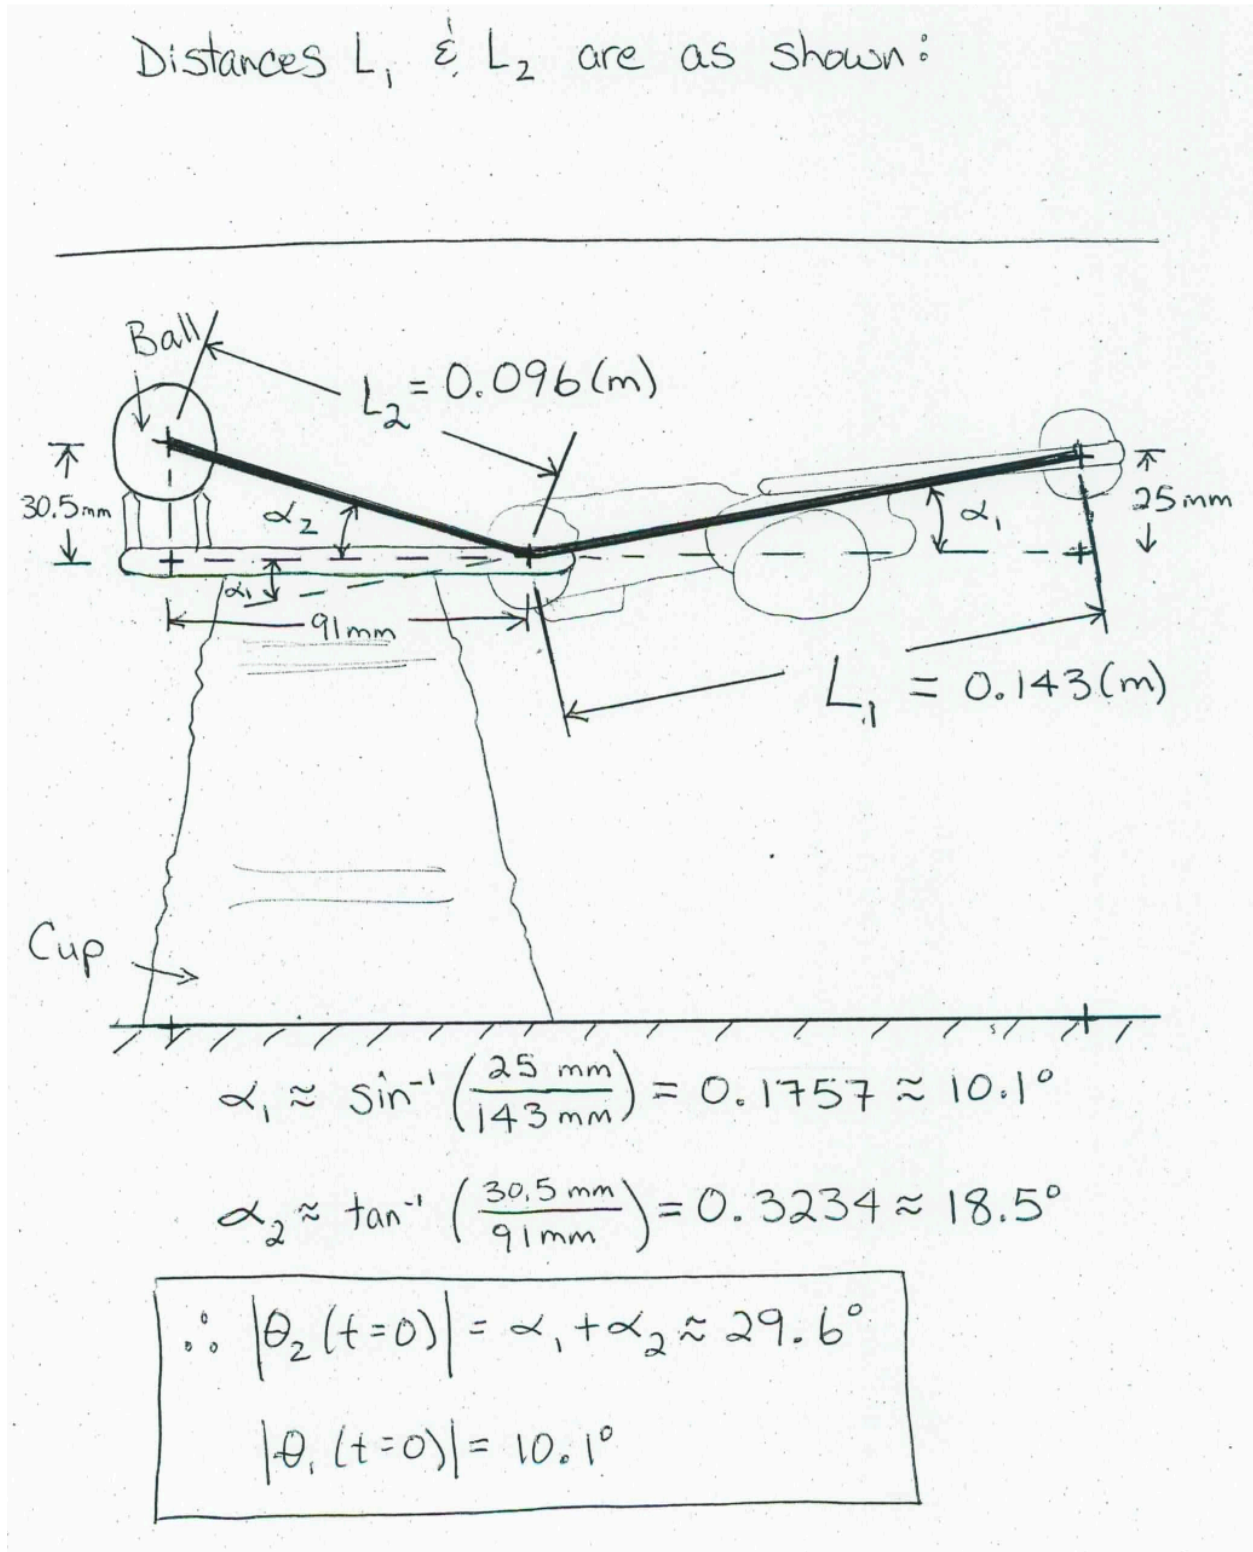 Distances L₁ & L₂ are as shown:
Ball
L₂ = 0.096 (m)
30.5mm
α₂
α₁
25mm
α₁
91mm
L₁ = 0.143 (m)
Cup
α₁ ≈ sin⁻¹ (25 mm / 143 mm) = 0.1757 ≈ 10.1°
α₂ ≈ tan⁻¹ (30.5 mm / 91mm) = 0.3234 ≈ 18.5°
∴ |θ₂ (t=0)| = α₁ + α₂ ≈ 29.6°
|θ₁ (t=0)| = 10.1°